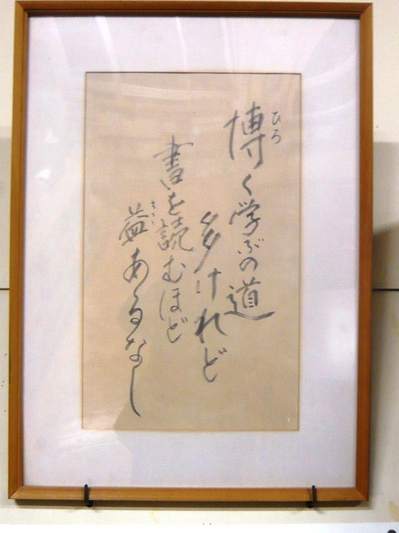 博く学ぶの道
ひろ
多けれど
書を読むほど
益あるなし